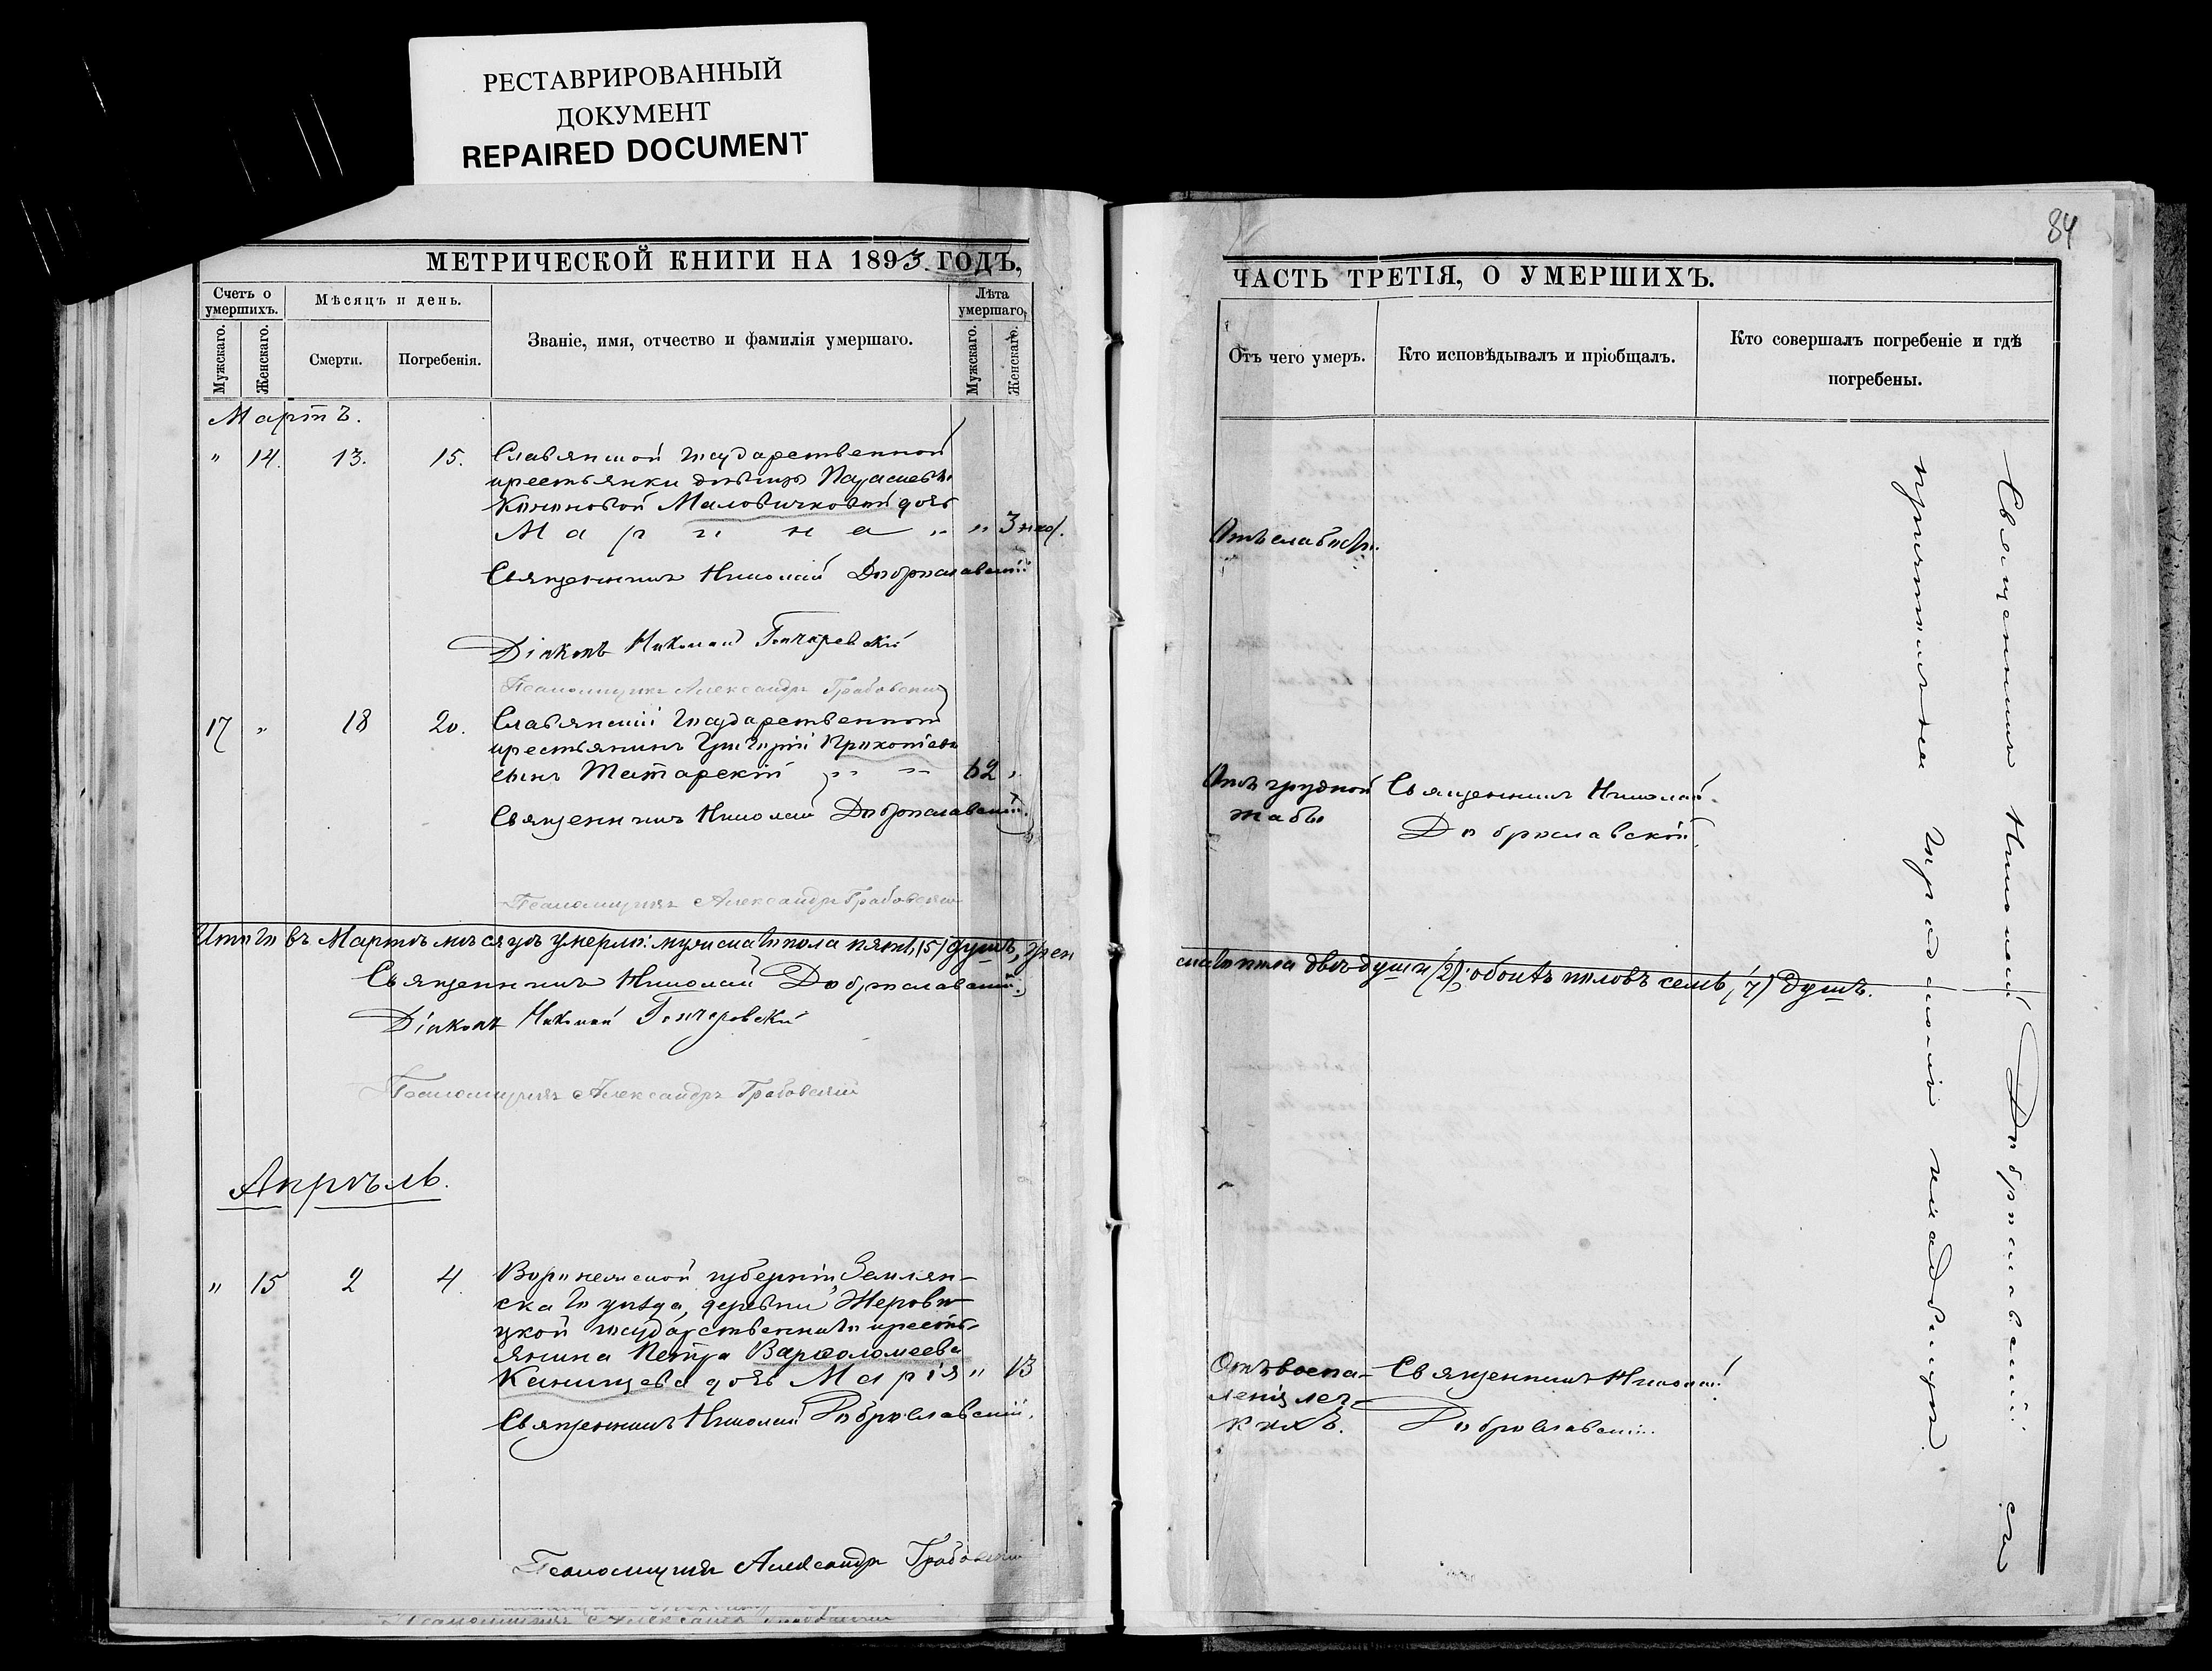 РЕСТАВРИРОВАННЫЙ
ДОКУМЕНТ
REPAIRED DOCUMENT
МЕТРИЧЕСКОЙ КНИГИ НА 1893. ГОДЪ,
Счетъ о умершихъ.
Мужскаго.
Женскаго.
Мѣсяцъ и день.
Смерти.
Погребенія.
Званіе, имя, отчество и фамилія умершаго.
Лѣта умершаго,
Мужскаго.
Женскаго.
Мартъ.
" 14. 13. 15. Славянской государственной
крестьянки дѣвицы
Маловичковой дочь
Марина " " 3 нед.
Священникъ Николай Доброславскій
Діаконъ Николай Гончаревскій
Псаломщикъ Александръ Грабовскій
17 " 18 20. Славянскій государственной
крестьянинъ Григорій Прокопіевъ
сынъ Татарскій " " 62 "
Священникъ Николай Доброславскій.
Псаломщикъ Александръ Грабовскій
Итого въ Мартѣ мѣсяцѣ умерло: мужескаго пола пять (5) душъ, жен
Священникъ Николай Доброславскій.
Діаконъ Николай Гончаревскій
Псаломщикъ Александръ Грабовскій
Апрѣль.
" 15 2 4. Воронежской губерніи, Землян-
скаго уѣзда, деревни
государственнаго кресть-
янина Петра Варѳоломеева
Канищева дочь Марія " 13
Священникъ Николай Доброславскій.
Псаломщикъ Александръ Грабовскій
Псаломщикъ Александръ Грабовскій
84
ЧАСТЬ ТРЕТІЯ, О УМЕРШИХЪ.
Отъ чего умеръ.
Кто исповѣдывалъ и пріобщалъ.
Кто совершалъ погребеніе и гдѣ
погребены.
Отъ слабости.
Отъ грудной Священникъ Николай
жабы Доброславскій.
скаго пола двѣ души (2); обоихъ половъ семь (7) душъ.
Отъ воспа- Священникъ Николай
ленія лег- Доброславскій.
кихъ.
Священникъ Николай Доброславскій съ
причтомъ на городскомъ кладбищѣ.